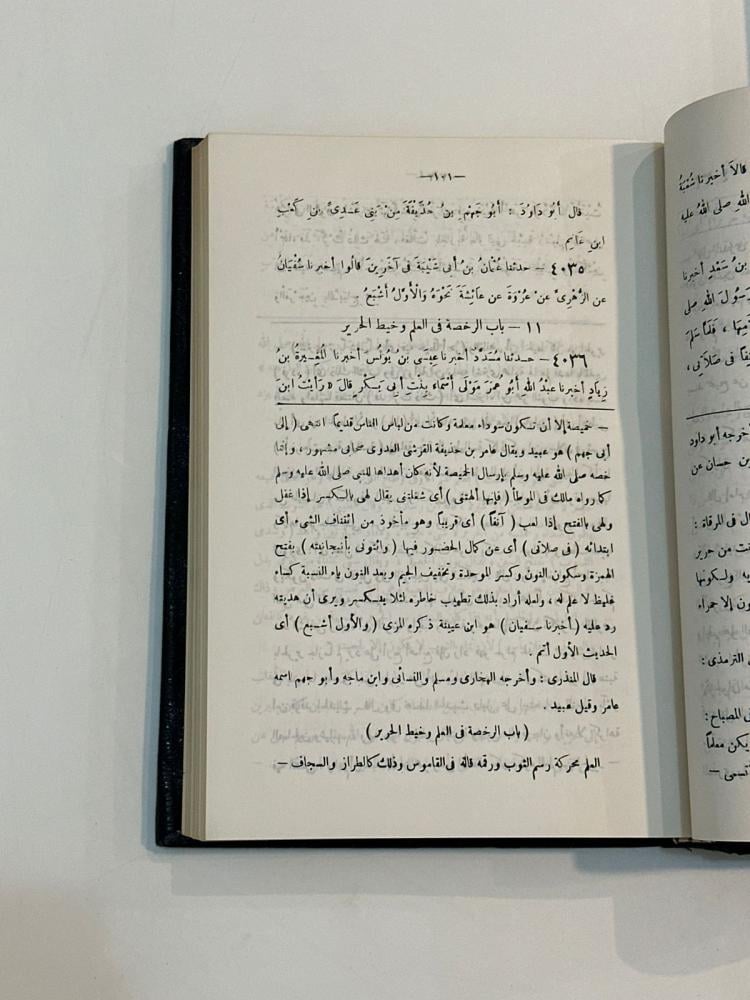 قالا أخبرنا شعبة
الله صلى الله عليه
بن سعد أخبرنا
رسول الله صلى
، فلما سلم
فى صلاتى ،
أخرجه أبو داود
بن حسان عن
ال فى المرقاة :
نت من حرير
يه ولكونها
ون إلا حمراء
الترمذى :
المصباح :
يكن معلما
تسمى —
—١٠١—
قال أَبُو دَاوُدَ : أَبُو جَهْمِ بنُ حُذَيْفَةَ مِنْ بَنِى عَدِىِّ بنِ كَعْبِ
ابنِ غَانِمٍ .
٤٠٣٥ — حدثنا عُثْمَانُ بنُ أَبِى شَيْبَةَ فى آخَرِينَ قالُوا أخبرنا سُفْيَانُ
عن الزُّهْرِىِّ عنْ عُرْوَةَ عن عَائِشَةَ نَحْوَهُ وَالْأَوَّلُ أَشْبَعُ .
١١ — باب الرخصة فى العلم وخيط الحرير
٤٠٣٦ — حدثنا مُسَدَّدٌ أخبرنا عِيسَى بنُ يُونُسَ أخبرنا الْمُغِيرَةُ بنُ
زِيَادٍ أخبرنا عبْدُ اللهِ أَبُو عُمَرَ مَوْلَى أَسْمَاءَ بِنْتِ أَبِى بَكْرٍ قالَ « رَأَيْتُ ابنَ
— خميصة إلا أن تكون سوداء معلمة وكانت من لباس الناس قديماً انتهى ( إلى
أبى جهم ) هو عبيد ويقال عامر بن حذيفة القرشى العدوى صحابى مشهور ، وإنما
خصه صلى الله عليه وسلم بإرسال الخميصة لأنه كان أهداها للنبى صلى الله عليه وسلم
كما رواه مالك فى الموطأ ( فإنها ألهتنى ) أى شغلتنى يقال لهى بالكسر إذا غفل
ولهى بالفتح إذا لعب ( آنفاً ) أى قريباً وهو مأخوذ من ائتناف الشىء أى
ابتدائه ( فى صلاتى ) أى عن كمال الحضور فيها ( وائتونى بأنبجانيته ) بفتح
الهمزة وسكون النون وكسر الموحدة وتخفيف الجيم وبعد النون ياء النسبة كساء
غليظ لا علم له ، ولعله أراد بذلك تطييب خاطره لئلا ينكسر ويرى أن هديته
رد عليه ( أخبرنا سفيان ) هو ابن عيينة ذكره المزى ( والأول أشبع ) أى
الحديث الأول أتم .
قال المنذرى : وأخرجه البخارى ومسلم والنسائى وابن ماجه وأبو جهم اسمه
عامر وقيل عبيد .
( باب الرخصة فى العلم وخيط الحرير )
العلم محركة رسم الثوب ورقمه قاله فى القاموس وذلك كالطراز والسجاف —